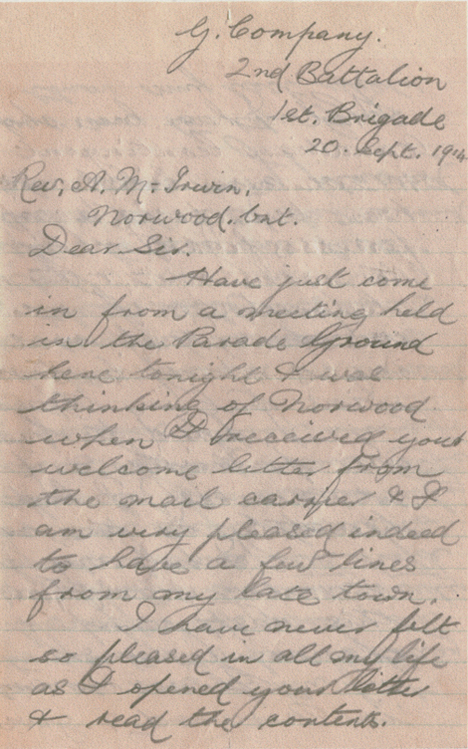 G. Company.
2nd Battalion
1st. Brigade
20. Sept. 1914
Rev, A. Mc Irwin,
Norwood. Ont.
Dear Sir.
Have just come
in from a meeting held
in the Parade Ground
here tonight & was
thinking of Norwood
when I received your
welcome letter from
the mail carrier & I
am very pleased indeed
to have a few lines
from my late town.
I have never felt
so pleased in all my life
as I opened your letter
& read the contents.